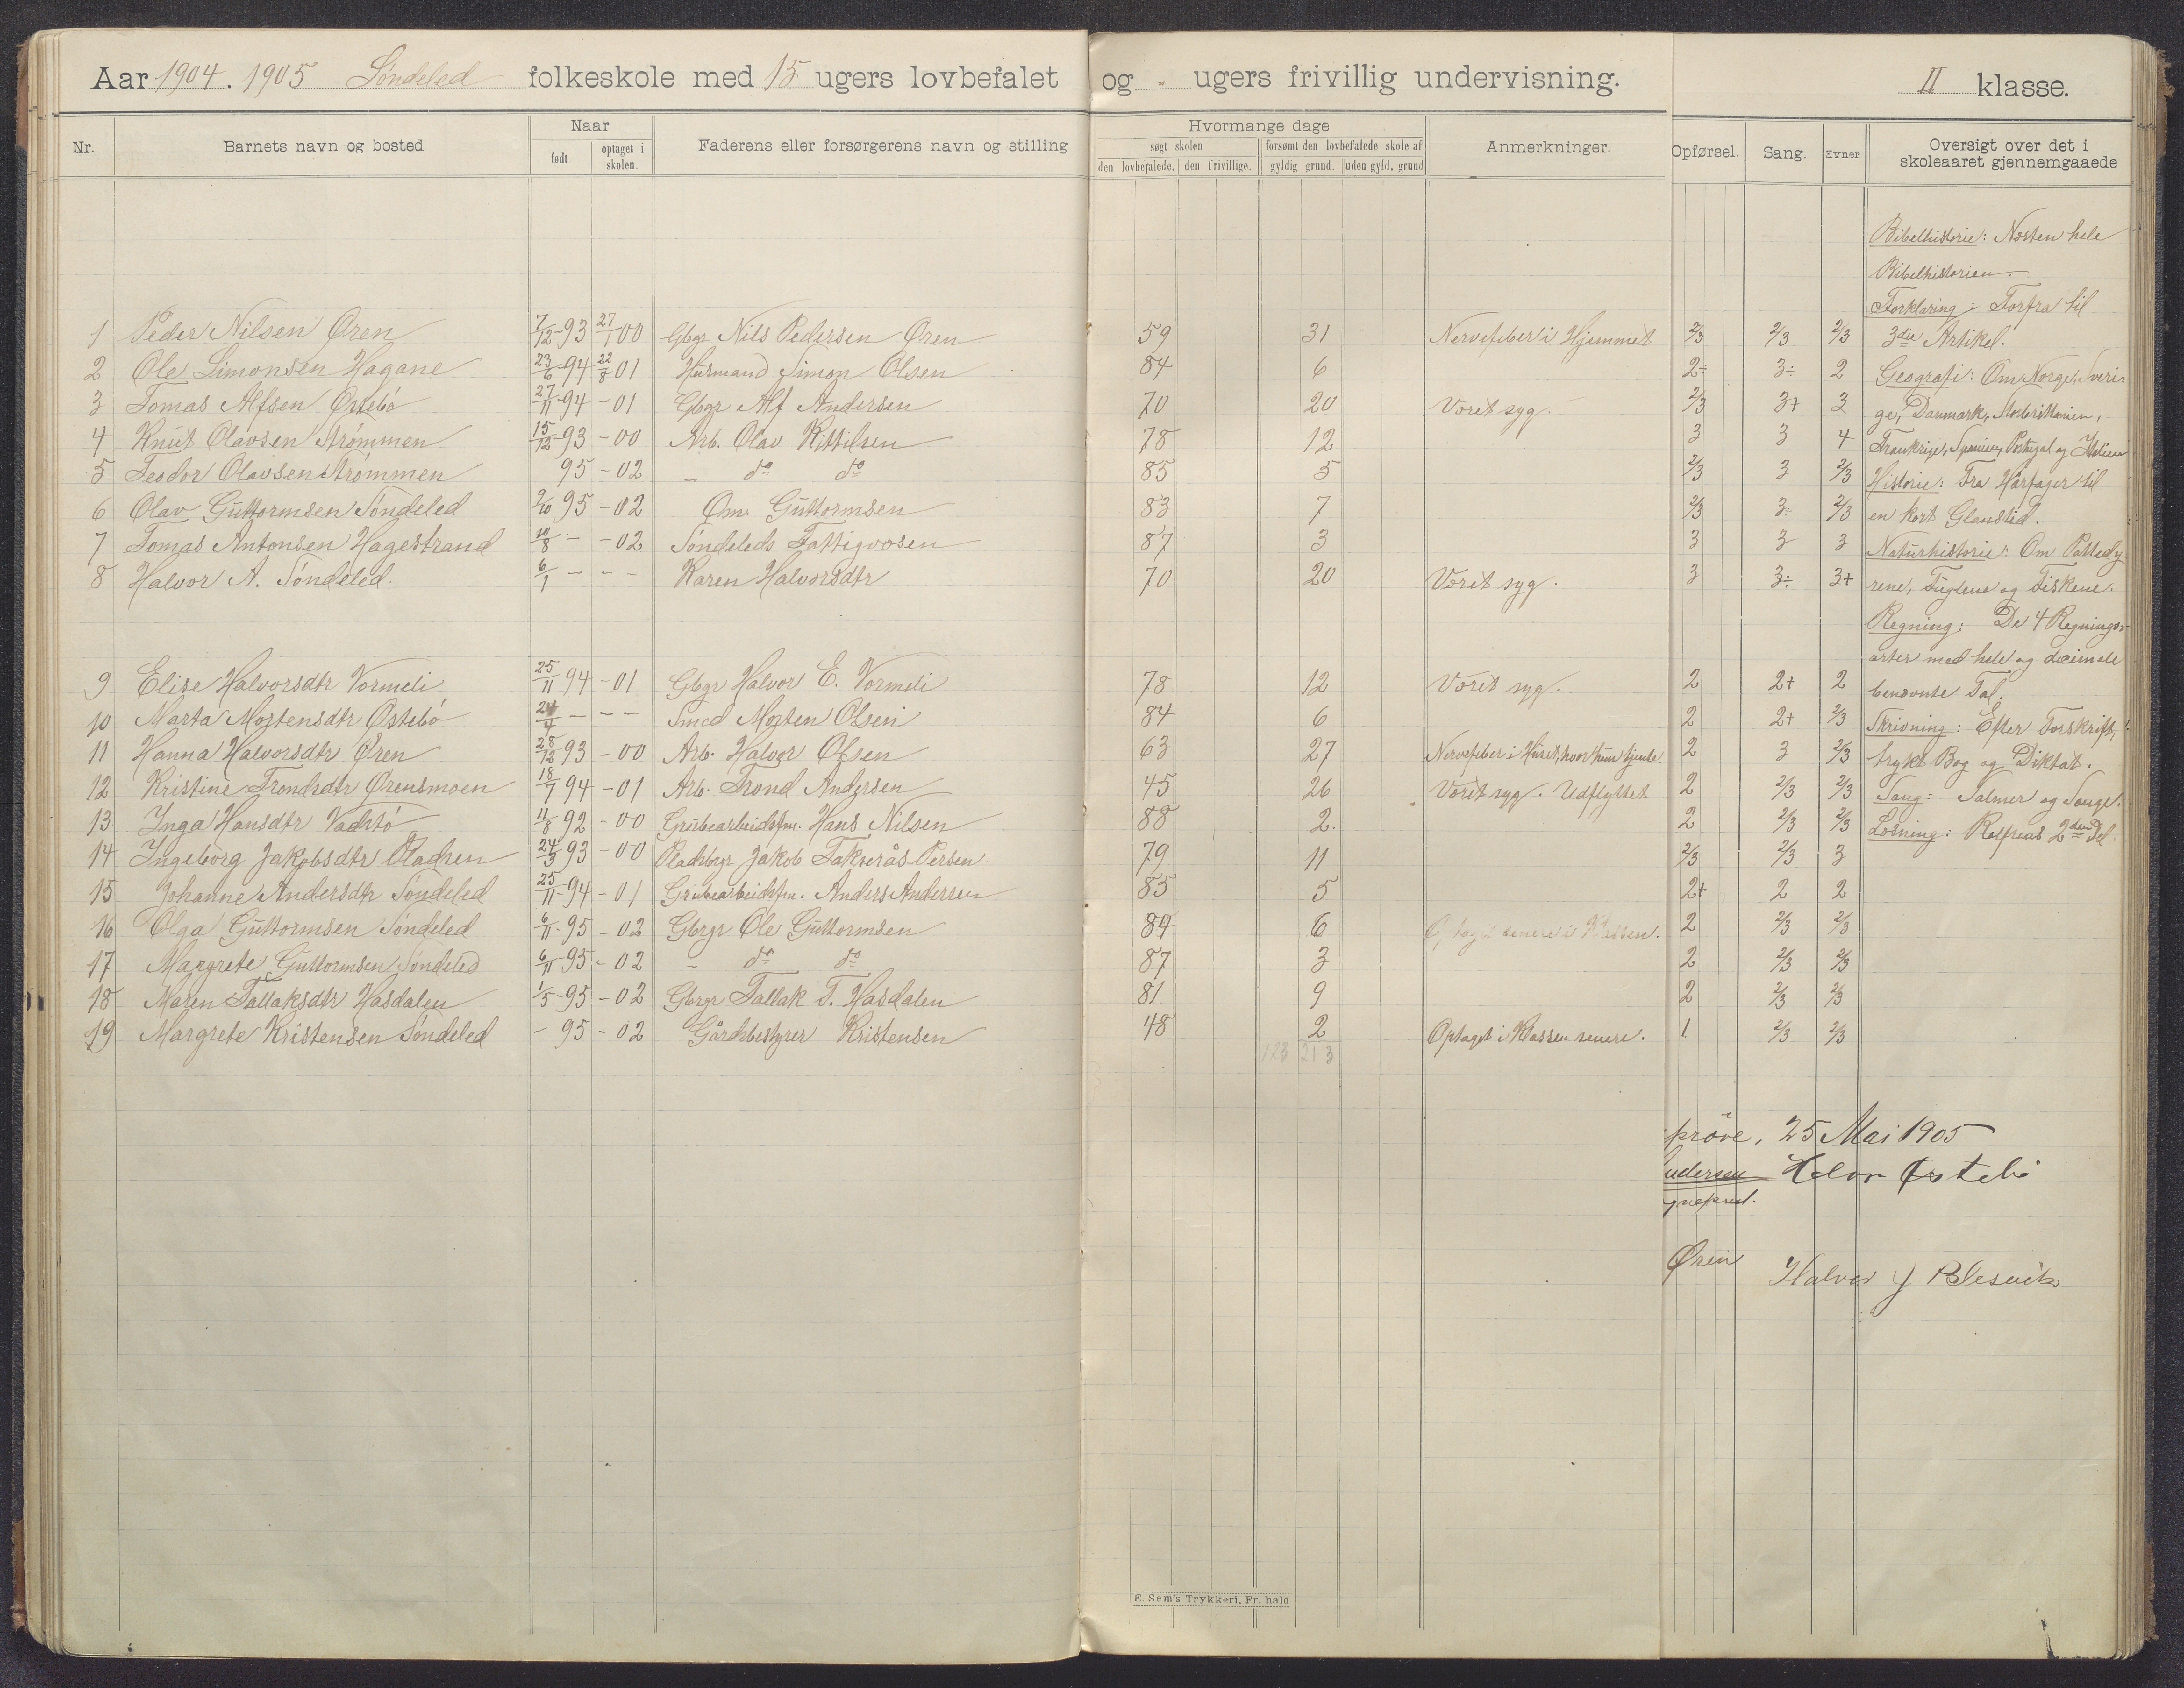 Aar 1904. 1905 Søndeled folkeskole med 15 ugers lovbefalet og „ ugers frivillig undervisning. II klasse.
Nr. Barnets navn og bosted Naar født optaget i skolen. Faderens eller forsørgerens navn og stilling Hvormange dage søgt skolen den lovbefalede. den frivillige. forsømt den lovbefalede skole af gyldig grund. uden gyld. grund Anmerkninger. Opførsel. Sang. Evner Oversigt over det i skoleaaret gjennemgaaede
1 Peder Nilsen Øren 7/12-93 27/1 00 Gbgr Nils Pedersen Øren 59 31 Nervefeber i Hjemmet 2/3 2/3 2/3
2 Ole Simonsen Hagane 23/6-94 22/8 01 Husmand Simon Olsen 84 6 2÷ 3÷ 2
3 Tomas Alfsen Østebö 27/11-94 -01 Gbgr Alf Andersen 70 20 Været syg. 2/3 3+ 3
4 Knut Olavsen Strömmen 15/12-93 -00 Arb. Olav Kittilsen 78 12 3 3 4
5 Teodor Olavsen Strömmen 95 -02 „ do do 85 5 2/3 3 2/3
6 Olav Guttormsen Söndeled 2/10 95 -02 Om. Guttormsen 83 7 2/3 3÷ 2/3
7 Tomas Antonsen Hagestrand 10/8 - -02 Söndeleds Fattigvæsen 87 3 3 3 3
8 Halvor A. Söndeled. 6/1 - - - Karen Halvorsdtr 70 20 Været syg. 3 3÷ 3+
9 Elise Halvorsdtr Vormeli 25/11 94 -01 Gbgr Halvor E. Vormeli 78 12 Været syg. 2 2+ 2
10 Marta Mortensdtr Østebö 24/4 - - - Smed Morten Olsen 84 6 2 2+ 2/3
11 Hanna Halvorsdtr Øren 28/12 93 -00 Arb. Halvor Olsen 63 27 Nervefeber i Huset, hvor hun tjente. 2 3 2/3
12 Kristine Trondsdtr Ørensmoen 18/7 94 -01 Arb. Trond Andersen 45 26 Været syg. Udflyttet 2 2/3 2/3
13 Inga Hansdtr Vadstö 11/8 92 -00 Grubearbeidsfm. Hans Nilsen 88 2. 2 2/3 2/3
14 Ingeborg Jakobsdtr Pladsen 24/3 93 -00 Pladsbgr Jakob Persen 79 11 2/3 2/3 3
15 Johanne Andersdtr Söndeled 25/11-94 -01 Grubearbeidsfm. Anders Andersen 85 5 2+ 2 2
16 Olga Guttormsen Söndeled 6/11-95 -02 Gbrgr Ole Guttormsen 84 6 Optaget senere i Klassen. 2 2/3 2/3
17 Margrete Guttormsen Söndeled 6/11 95 -02 „ do do 87 3 2 2/3 2/3
18 Maren Tallaksdtr Hasdalen 1/5-95 -02 Gbrgr Tallak T. Hasdalen 81 9 2 2/3 2/3
19 Margrete Kristensen Söndeled - 95 -02 Gårdsbestyrer Kristensen 48 2 Optaget i Klassen senere. 1. 2/3 2/3
123 213
Bibelhistorie: Næsten hele
Bibelhistorien.
Forklaring: Forfra til
3die Artikel.
Geografi: Om Norge, Sveri-
ge, Danmark, Storbrittanien,
Frankrige, Spanien, Portugal og Italien
Historie: Fra Hårfager til
en kort Glanstid.
Naturhistorie: Om Pattedy-
rene, Fuglene og Fiskene.
Regning: De 4 Regnings-
arter med hele og decimale
benævnte Tal.
Skrivning: Efter Forskrift,
trykt Bog og Diktat.
Sang: Salmer og Sange.
Læsning: Rolfsens 2den Del
pröve, 25 Mai 1905
ndersen Halvor Østebö
gnepræst.
Øren Halvor J
E. Sem's Trykkeri, Fr. hald